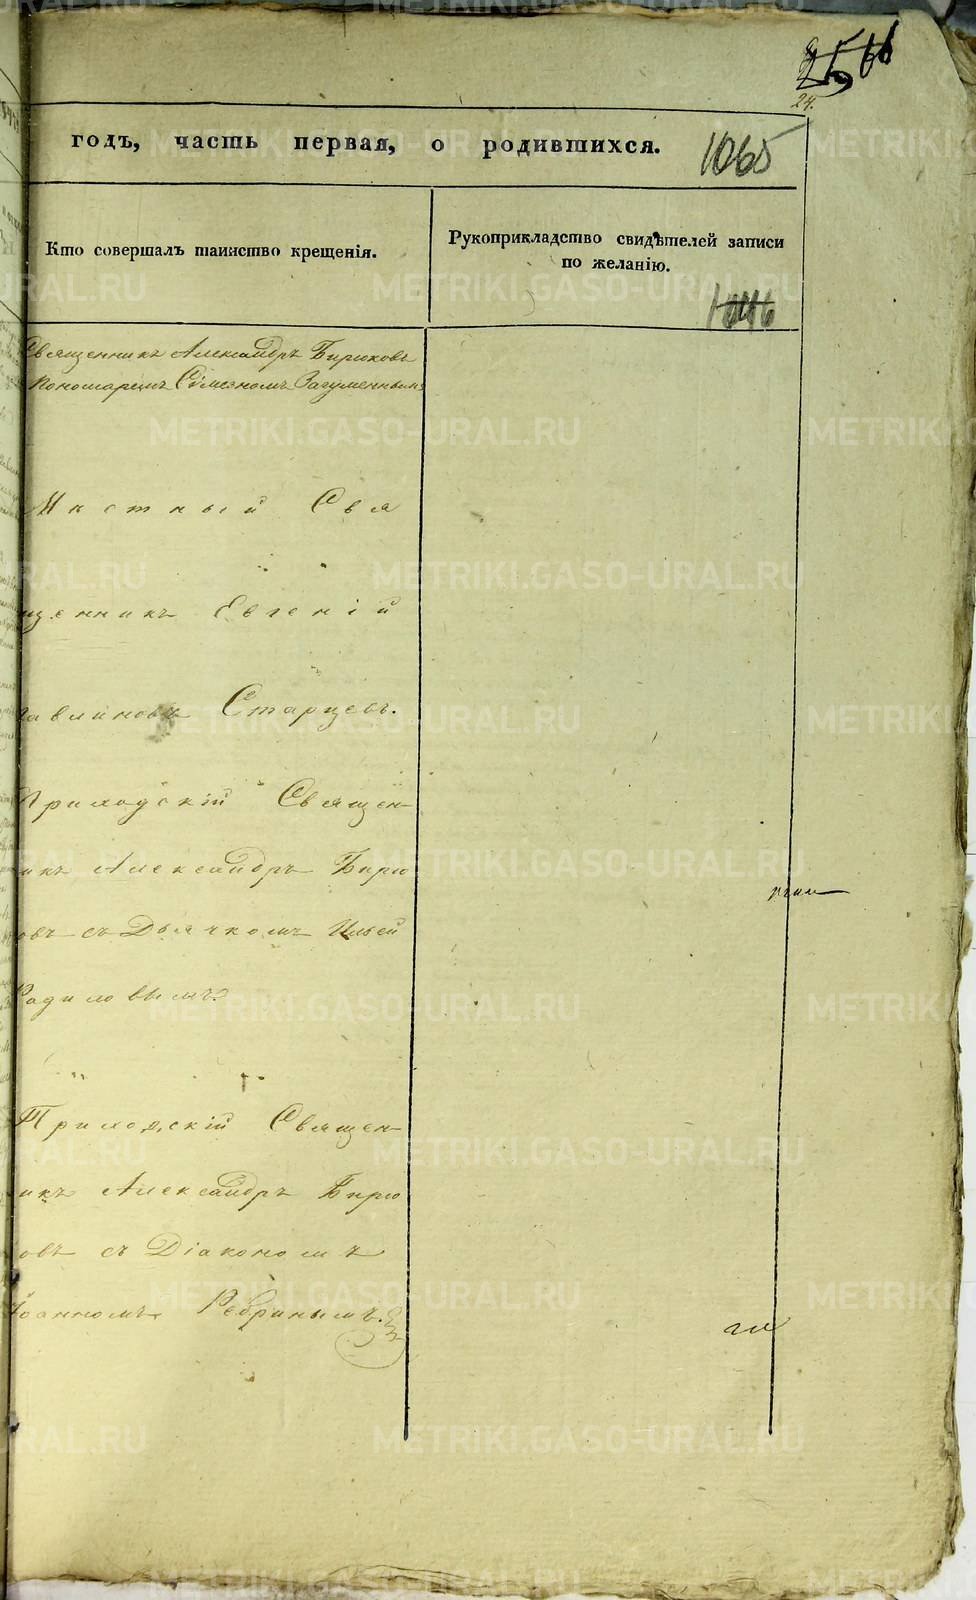 24.
годъ, часть первая, о родившихся.
1065
Кто совершалъ таинство крещенія.
Рукоприкладство свидѣтелей записи
по желанію.
1046
Священникъ Александръ Бирюковъ
Пономаремъ Загуменнымъ
Мѣстный Свя
щенникъ Евгеній
Павлиновъ Старцевъ.
Приходскій Священ-
икъ Александръ Бирю
овъ съ Дьячкомъ Ильей
Радиловымъ.
Приходскій Священ-
икъ Александръ Бирю
овъ съ Діакономъ
Іоанномъ Ребринымъ.
METRIKI.GASO-URAL.RU